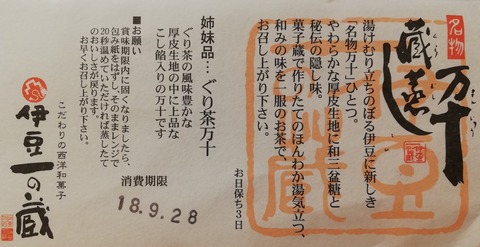 名物
万十
蔵蒸し
湯けむり立ちのぼる伊豆に新しき
「名物万十」ひとつ。
やわらかな厚皮生地に和三盆糖と
秘伝の隠し味。
菓子蔵で作りたてのほんわか湯気立つ、
和みの味を一服のお茶で、
お召し上がり下さい。
お日保ち3日
姉妹品…ぐり茶万十
ぐり茶の風味豊かな
厚皮生地の中に上品な
こし餡入りの万十です
消費期限
18.9.28
■お願い
賞味期限内に固くなりましたら、
包み紙をはずし、そのままレンジで
20秒温めていただければ蒸したて
のおいしさが戻ります。
お早くお召し上がり下さい。
こだわりの西洋和菓子
伊豆一の蔵